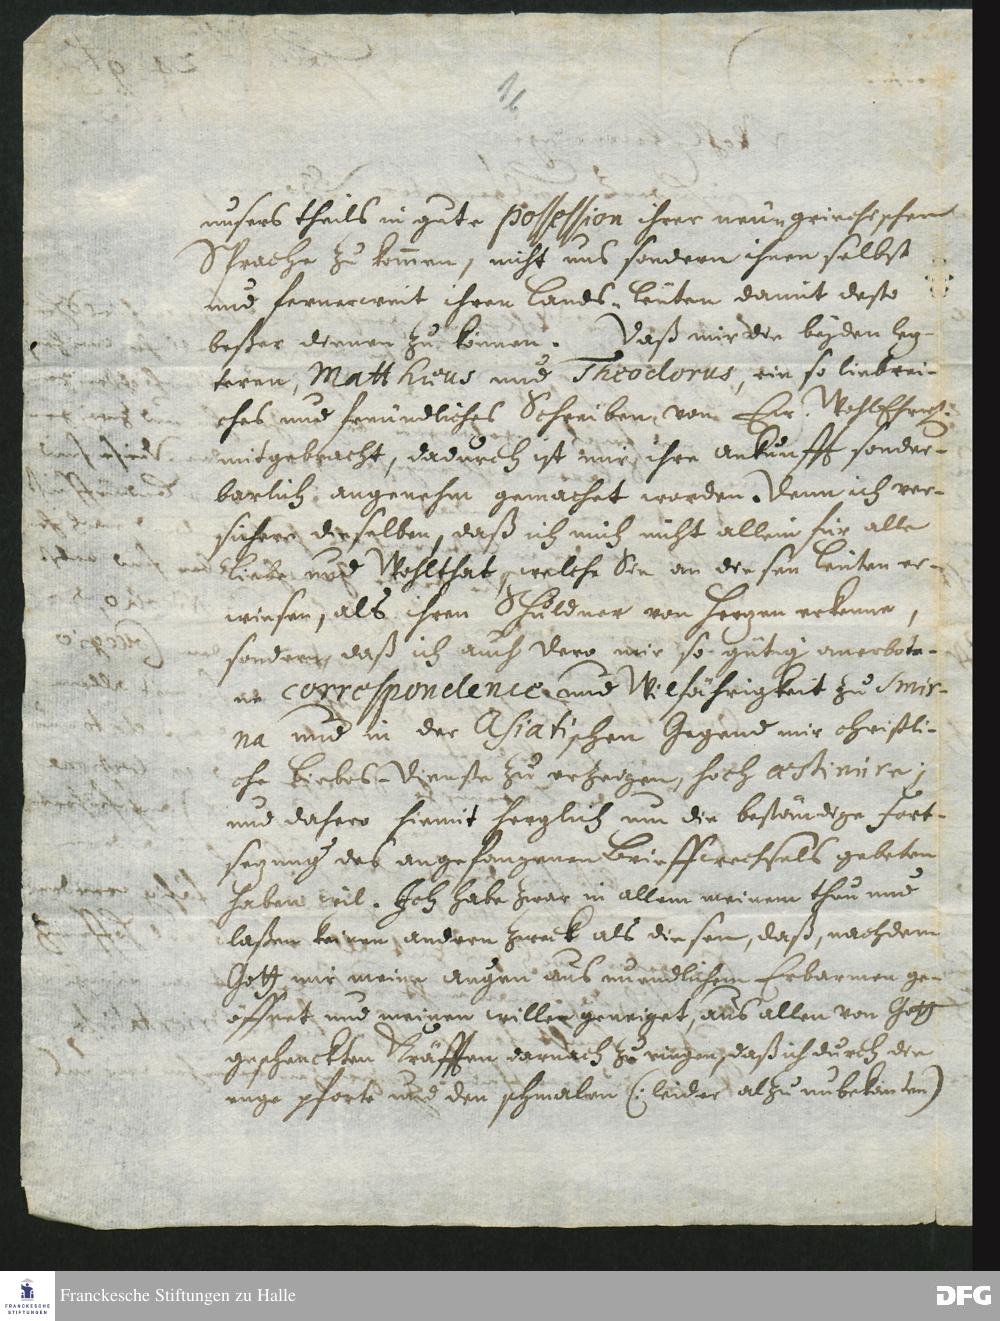 16
unsers theils in gute possession ihrer neu-griechischen
Sprache zu kom̄en, nicht uns sondern ihnen selbst
und fernerweit ihren Lands-Leüten damit desto
beßer dienen zu können. Daß mir die beyden letz-
teren, Matthæus und Theodorus, ein so liebrei-
ches und freündliches Schreiben von Ew. WohlEhrw.
mitgebracht, dadurch ist mir ihre ankunfft sonder-
barlich angenehm gemachet worden. Denn ich ver-
sichere dieselben, daß ich mich nicht allein für alle
Liebe und Wohlthat, welche Sie an diesen Leuten er-
wiesen, als ihren Schuldner von Hertzen erkenne,
sondern daß ich auch dero mir so gütig anerbote-
ne correspondence und Wilfährigkeit zu Smir-
na und in der Asiatischen Gegend mir christli-
che Liebes-Dienste zu erzeigen, hoch æstimire;
und dahero hiemit hertzlich um die beständige fort-
setzung des angefangenen Brieffwechsels gebeten
haben wil. Ich habe zwar in allem meinem thun und
laßen keinen andern zweck als diesen, daß, nachdem
Gott mir meine augen aus unendlichem Erbarmen ge-
öffnet und meinen willen geneiget, aus allen von Gott
geschenckten Kräfften darnach zu ringen, daß ich durch die
enge pforte und den schmalen (: leider alzu unbekanten)
Franckesche Stiftungen zu Halle
FRANCKESCHE
STIFTUNGEN
DFG